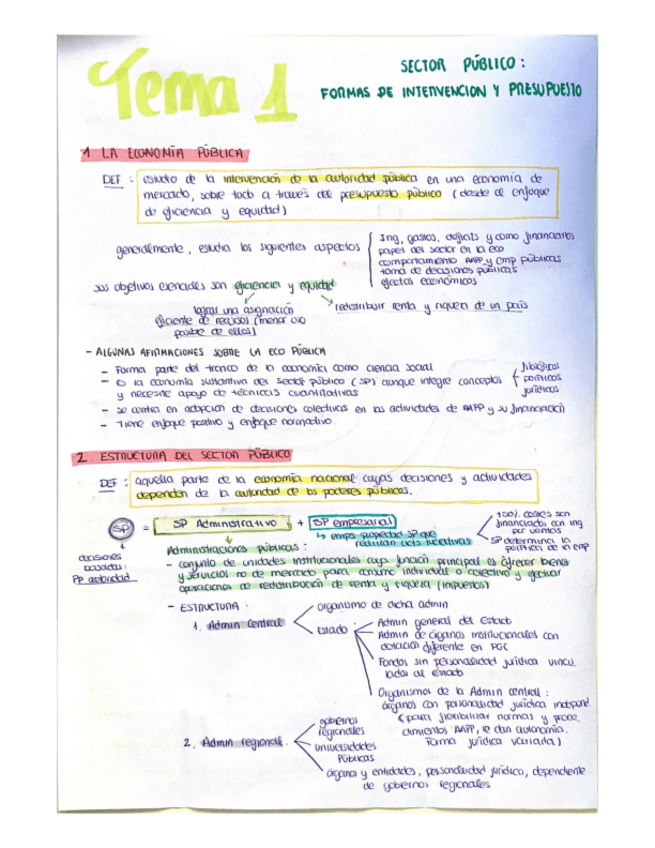 Tema 1
SECTOR PÚBLICO:
FORMAS DE INTERVENCION Y PRESUPUESTO
1 LA ECONOMÍA PÚBLICA
DEF: estudio de la intervención de la autoridad pública en una economía de
mercado, sobre todo a través del presupuesto público (desde el enfoque
de eficiencia y equidad)
generalmente, estudia los siguientes aspectos
Ing, gastos, déficits y como financiarlos
papel del sector en la eco
comportamiento AAPP y emp públicas
toma de decisiones públicas
efectos económicos
sus objetivos esenciales son eficiencia y equidad
lograr una asignación
eficiente de recursos (menor uso
posible de ellos)
redistribuir renta y riqueza de un país
- ALGUNAS AFIRMACIONES SOBRE LA ECO PÚBLICA
- Forma parte del tronco de la economía como ciencia social
- es la economía sustantiva del sector público (SP) aunque integre conceptos
y necesite apoyo de técnicas cuantitativas
filosóficos
políticos
jurídicos
- se centra en adopción de decisiones colectivas en las actividades de AAPP y su financiación
- Tiene enfoque positivo y enfoque normativo
2. ESTRUCTURA DEL SECTOR PÚBLICO
DEF: aquella parte de la economía nacional cuyas decisiones y actividades
dependen de la autoridad de los poderes públicos.
SP = SP Administrativo + SP empresarial
decisiones
basadas:
PP autoridad
emps propiedad SP que
realizan acts lucrativas
costes son
financiados con ing
por ventas
SP determina la
política de la emp
Administraciones públicas:
- conjunto de unidades institucionales cuya función principal es ofrecer bienes
y servicios no de mercado para consumo individual o colectivo y efectuar
operaciones de redistribución de renta y riqueza (impuestos)
- ESTRUCTURA:
1. Admin Central
organismo de dicha admin
Estado
Admin general del Estado
Admin de órganos institucionales con
dotación diferente en PGE
Fondos sin personalidad jurídica vincu
lados al estado
Organismos de la Admin central:
órganos con personalidad jurídica independ.
(para flexibilizar normas y proce
dimientos AAPP, le dan autonomía.
Forma jurídica variada)
2. Admin regional.
gobiernos
regionales
universidades
públicas
órganos y entidades, personalidad jurídica, dependiente
de gobiernos regionales